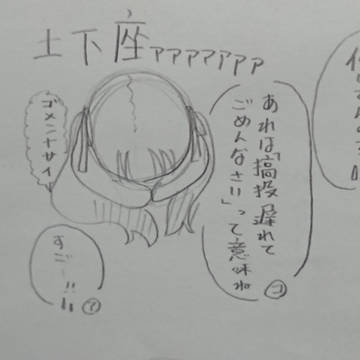 土下座ァァァァァァァ
あれは「搞投遅れて
ごめんなさい」って意味ね
コ
ゴメンナサイ
すご〜!!